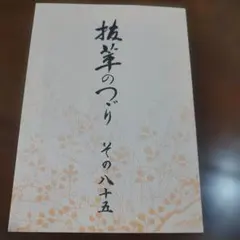 抜萃のつゞり
その八十五